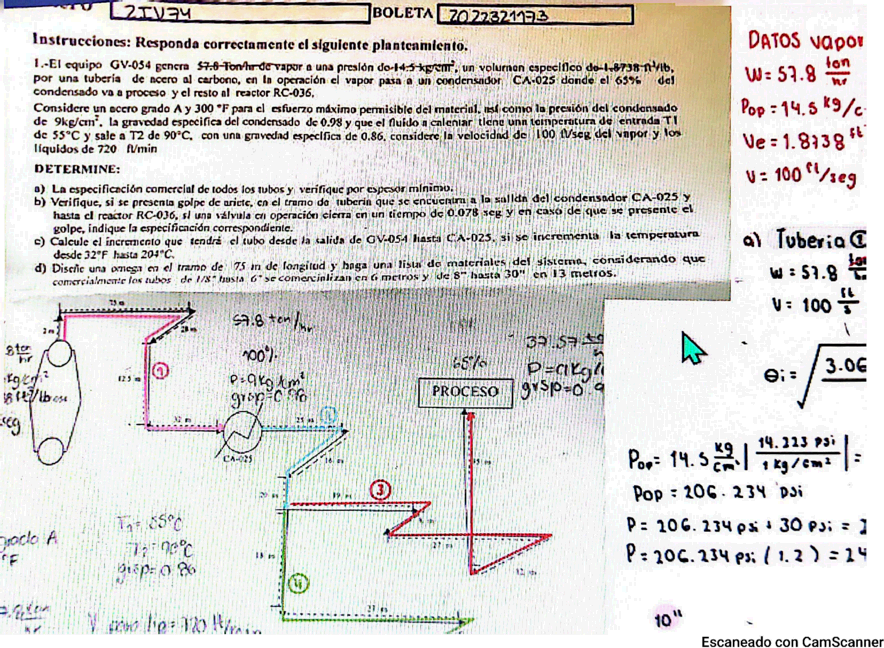 2IV34
BOLETA 2022321193
Instrucciones: Responda correctamente el siguiente planteamiento.
1.-El equipo GV-054 genera 57.8 Ton/hr de vapor a una presión de 14.5 kg/cm², un volumen específico de 1.8738 ft³/lb,
por una tubería de acero al carbono, en la operación el vapor pasa a un condensador CA-025 donde el 65% del
condensado va a proceso y el resto al reactor RC-036.
Considere un acero grado A y 300 °F para el esfuerzo máximo permisible del material, así como la presión del condensado
de 9kg/cm², la gravedad especifica del condensado de 0.98 y que el fluido a calentar tiene una temperatura de entrada T1
de 55°C y sale a T2 de 90°C, con una gravedad especifica de 0.86, considere la velocidad de 100 ft/seg del vapor y los
líquidos de 720 ft/min
DETERMINE:
a) La especificación comercial de todos los tubos y verifique por espesor mínimo.
b) Verifique, si se presenta golpe de ariete, en el tramo de tubería que se encuentra a la salida del condensador CA-025 y
hasta el reactor RC-036, si una válvula en operación cierra en un tiempo de 0.078 seg y en caso de que se presente el
golpe, indique la especificación correspondiente.
c) Calcule el incremento que tendrá el tubo desde la salida de GV-054 hasta CA-025, si se incrementa la temperatura
desde 32°F hasta 204°C.
d) Diseñe una omega en el tramo de 75 m de longitud y haga una lista de materiales del sistema, considerando que
comercialmente los tubos de 1/8" hasta 6" se comercializan en 6 metros y de 8" hasta 30" en 13 metros.
DATOS vapor
W= 57.8 ton/hr
Pop = 14.5 kg/c
Ve = 1.8738 ft
V = 100 ft/seg
a) Tubería ①
W = 57.8
V = 100 ft/s
Θi = √ 3.06
Pop= 14.5 kg/cm² | 14.223 psi / 1 kg/cm² | =
Pop = 206.234 psi
P = 206.234 psi + 30 psi =
P = 206.234 psi (1.2) = 24
10"
75 m
2 m
28 m
12.5 m
①
32 m
CA-025
57.8 ton/hr
100%
P=9kg/cm²
grsp=0.98
②
25 m
16 m
20 m
19 m
③
27 m
12 m
④
65%
PROCESO
37.57
P=9kg/
grsp=0.9
grado A
°F
T1= 55°C
T2= 90°C
grsp=0.86
Escaneado con CamScanner